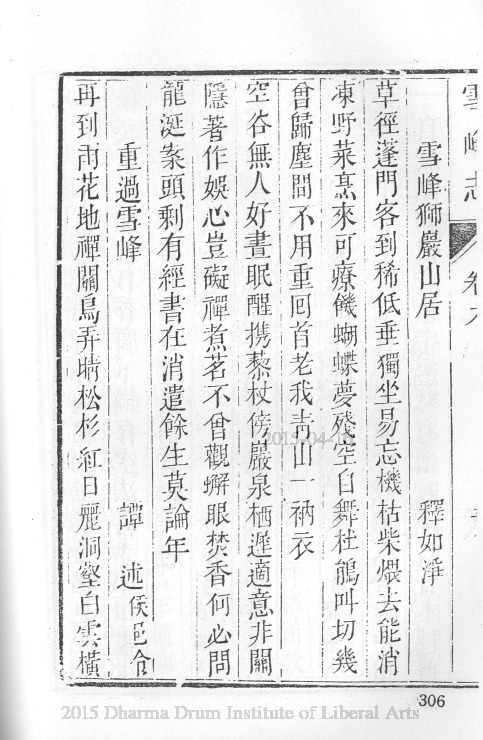 雪峰志
卷九
雪峰獅巖山居 釋如淨
草徑蓬門客到稀低垂獨坐易忘機枯柴煨去能消
凍野菜烹來可療饑蝴蝶夢殘空自舞杜鵑叫切幾
曾歸塵間不用重回首老我青山一衲衣
空谷無人好晝眠醒携藜杖傍巖泉栖遲適意非關
隱著作娛心豈礙禪煮茗不曾觀蠏眼焚香何必問
龍涎案頭剩有經書在消遣餘生莫論年
重過雪峰 譚述侯邑令
再到雨花地禪關鳥弄晴松杉紅日麗洞壑白雲橫
2015-04-1
306
2015 Dharma Drum Institute of Liberal Arts